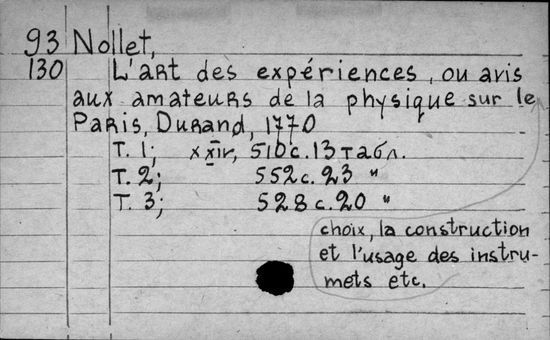 93 Nollet,
130 L'art des expériences, ou avis
aux amateurs de la physique sur le
Paris, Durand, 1770
T. 1; xxiv, 510 с. 13 табл.
T. 2; 552 с. 23 "
T. 3; 528 с. 20 "
choix, la construction
et l'usage des instru-
mets etc.